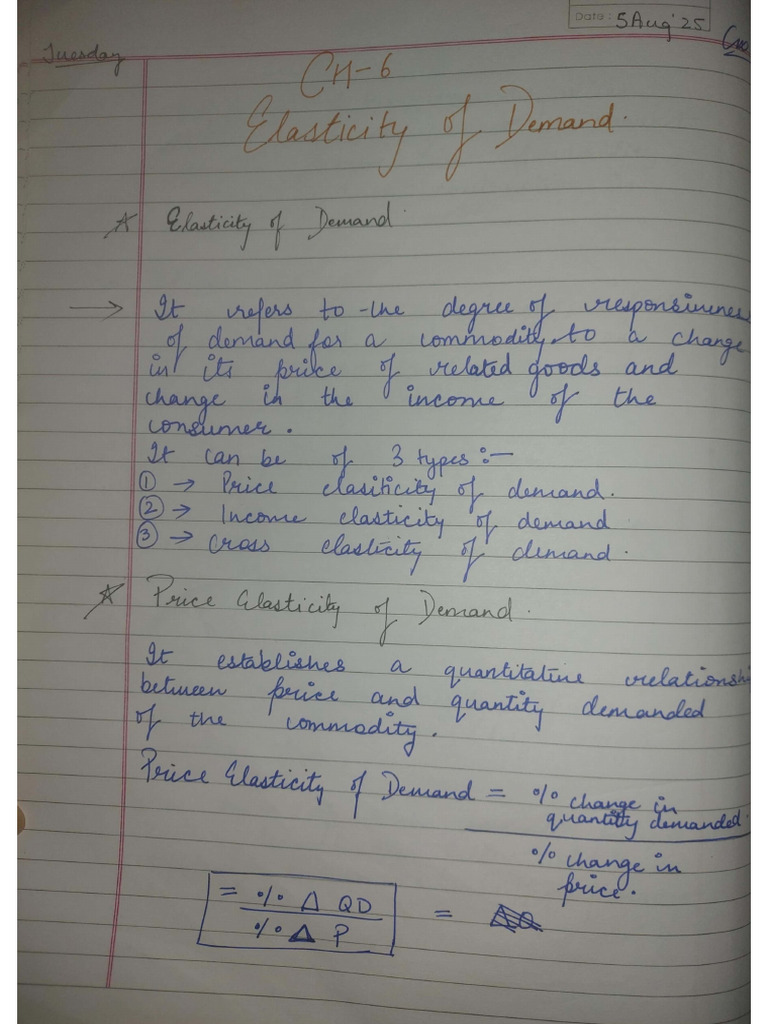 Date: 5 Aug'25
Tuesday
CH-6
Elasticity of Demand.
Elasticity of Demand.
→ It refers to the degree of responsiveness
of demand for a commodity to a change
in its price of related goods and
change in the income of the
consumer.
It can be of 3 types :-
① → Price elasiticity of demand.
② → Income elasticity of demand
③ → Cross elasticity of demand.
Price Elasticity of Demand.
It establishes a quantitative relationship
between price and quantity demanded
of the commodity.
Price Elasticity of Demand = % change in
quantity demanded.
% change in
price.
= % Δ QD =
% Δ P